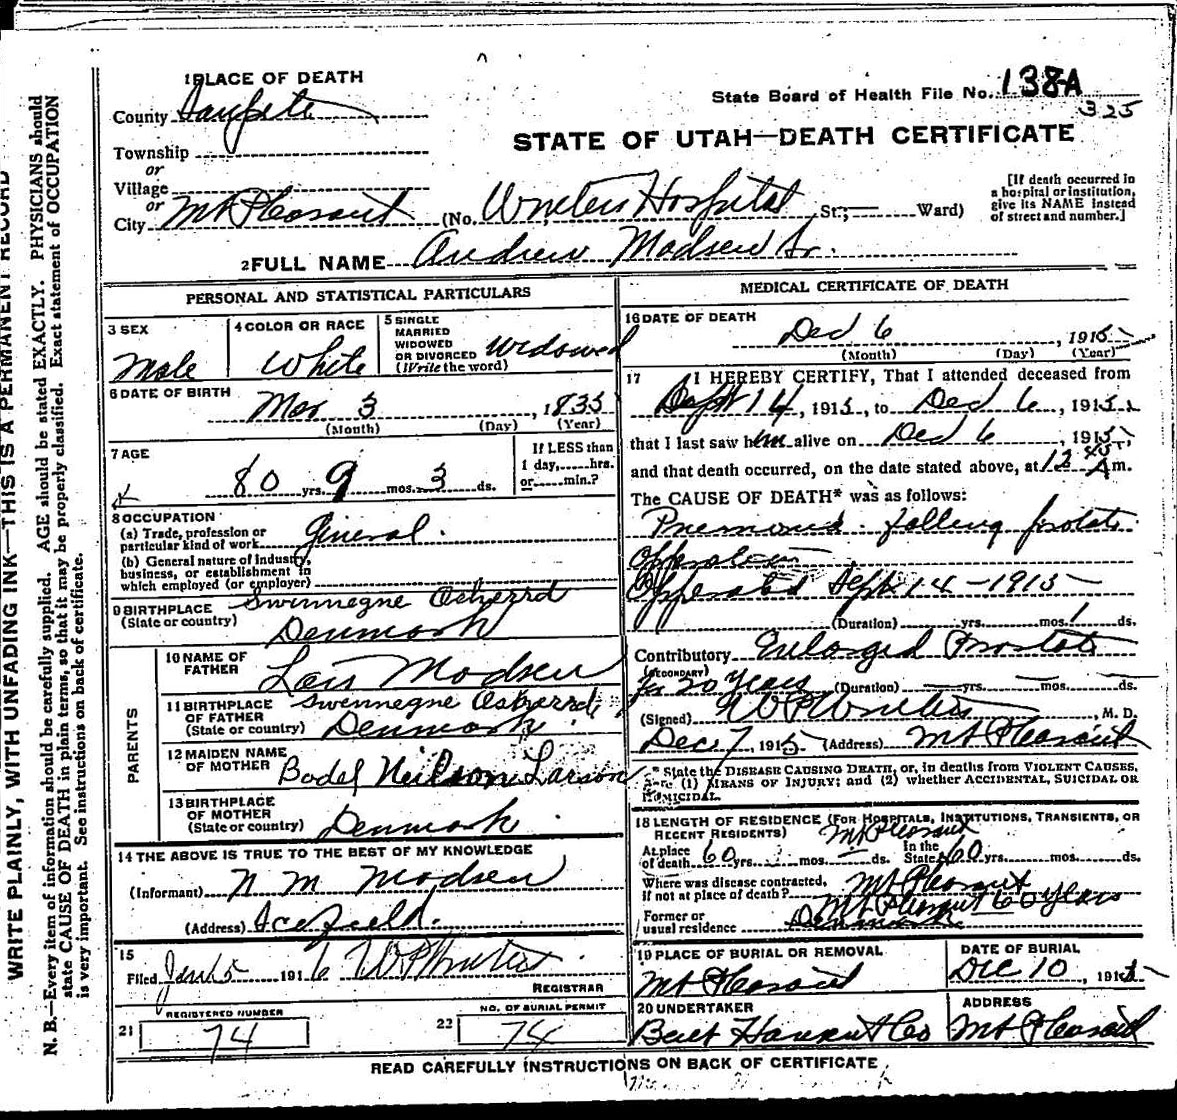 1 PLACE OF DEATH
County Sanpete
State Board of Health File No. 138-A
325
Township
or
Village
or
City Mt Pleasant (No. Winters Hospital St.; Ward)
STATE OF UTAH—DEATH CERTIFICATE
[If death occurred in
a hospital or institution,
give its NAME instead
of street and number.]
2 FULL NAME Andrew Madsen Sr.
PERSONAL AND STATISTICAL PARTICULARS
3 SEX
Male
4 COLOR OR RACE
White
5 SINGLE
MARRIED
WIDOWED
OR DIVORCED
(Write the word)
Widowed
6 DATE OF BIRTH
Mar 3, 1835
(Month) (Day) (Year)
7 AGE
80 yrs. 9 mos. 3 ds.
If LESS than
1 day, hrs.
or min.?
8 OCCUPATION
(a) Trade, profession or
particular kind of work General.
(b) General nature of industry,
business, or establishment in
which employed (or employer)
9 BIRTHPLACE
(State or country)
Denmark
PARENTS
10 NAME OF
FATHER
Lars Madsen
11 BIRTHPLACE
OF FATHER
(State or country)
Denmark
12 MAIDEN NAME
OF MOTHER
Bodel Neilson Larson
13 BIRTHPLACE
OF MOTHER
(State or country) Denmark.
14 THE ABOVE IS TRUE TO THE BEST OF MY KNOWLEDGE
(Informant) N M Madsen
(Address)
15
Filed Jan 5 1916 W P Winters
REGISTRAR
21 REGISTERED NUMBER
74
22 NO. OF BURIAL PERMIT
74
MEDICAL CERTIFICATE OF DEATH
16 DATE OF DEATH
Dec 6, 1915
(Month) (Day) (Year)
17 I HEREBY CERTIFY, That I attended deceased from
Sept 14, 1915, to Dec 6, 1915
that I last saw him alive on Dec 6, 1915,
and that death occurred, on the date stated above, at 12 45 A m.
The CAUSE OF DEATH* was as follows:
Pnemonia - following prostate
opperation
Opperated Sept 14-1915
(Duration) yrs. mos. 1 ds.
Contributory Enlarged Prostate
(SECONDARY)
for 20 years (Duration) yrs. mos. ds.
(Signed) W P Winters, M. D.
Dec 7, 1915 (Address) Mt Pleasant
* State the DISEASE CAUSING DEATH, or, in deaths from VIOLENT CAUSES,
state (1) MEANS OF INJURY; and (2) whether ACCIDENTAL, SUICIDAL OR
HOMICIDAL.
18 LENGTH OF RESIDENCE (FOR HOSPITALS, INSTITUTIONS, TRANSIENTS, OR
RECENT RESIDENTS) Mt Pleasant
At place
of death 60 yrs. mos. ds.
In the
State 60 yrs. mos. ds.
Where was disease contracted,
if not at place of death? Mt Pleasant
Mt Pleasant 60 years
Former or
usual residence Denmark
19 PLACE OF BURIAL OR REMOVAL
Mt Pleasant
DATE OF BURIAL
Dec 10, 1915
20 UNDERTAKER
ADDRESS
Mt Pleasant
READ CAREFULLY INSTRUCTIONS ON BACK OF CERTIFICATE
WRITE PLAINLY, WITH UNFADING INK—THIS IS A PERMANENT RECORD
N. B.—Every item of information should be carefully supplied. AGE should be stated EXACTLY. PHYSICIANS should
state CAUSE OF DEATH in plain terms, so that it may be properly classified. Exact statement of OCCUPATION
is very important. See instructions on back of certificate.